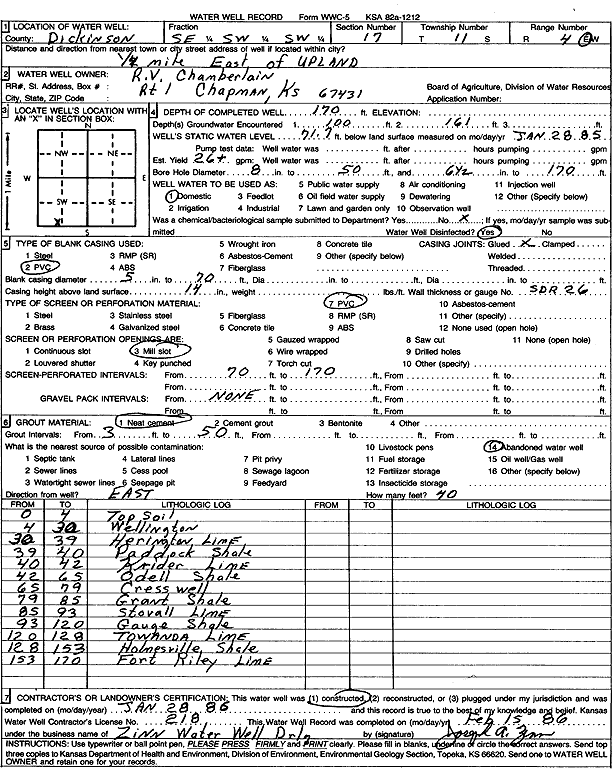 WATER WELL RECORD Form WWC-5 KSA 82a-1212
1 LOCATION OF WATER WELL: Fraction Section Number Township Number Range Number
County: DICKINSON SE ¼ SW ¼ SW ¼ 17 T 11 S R 4 E/W
Distance and direction from nearest town or city street address of well if located within city?
1/4 mile East of UPLAND
2 WATER WELL OWNER: R.V. Chamberlain
RR#, St. Address, Box # : Rt 1 Chapman, Ks 67431 Board of Agriculture, Division of Water Resources
City, State, ZIP Code : Application Number:
3 LOCATE WELL'S LOCATION WITH AN "X" IN SECTION BOX:
N
NW NE
W E
SW SE
X
S
1 Mile
4 DEPTH OF COMPLETED WELL 170 ft. ELEVATION:
Depth(s) Groundwater Encountered 1. 100 ft. 2. 161 ft. 3. ft.
WELL'S STATIC WATER LEVEL 71.7 ft. below land surface measured on mo/day/yr JAN 28 85
Pump test data: Well water was ft. after hours pumping gpm
Est. Yield 26+ gpm: Well water was ft. after hours pumping gpm
Bore Hole Diameter 8 in. to 50 ft., and 6 1/2 in. to 170 ft.
WELL WATER TO BE USED AS: 5 Public water supply 8 Air conditioning 11 Injection well
1 Domestic 3 Feedlot 6 Oil field water supply 9 Dewatering 12 Other (Specify below)
2 Irrigation 4 Industrial 7 Lawn and garden only 10 Observation well
Was a chemical/bacteriological sample submitted to Department? Yes No X; If yes, mo/day/yr sample was submitted Water Well Disinfected? Yes No
5 TYPE OF BLANK CASING USED: 5 Wrought iron 8 Concrete tile CASING JOINTS: Glued X Clamped
1 Steel 3 RMP (SR) 6 Asbestos-Cement 9 Other (specify below) Welded
2 PVC 4 ABS 7 Fiberglass Threaded
Blank casing diameter 5 in. to 70 ft., Dia in. to ft., Dia in. to ft.
Casing height above land surface 14 in., weight lbs./ft. Wall thickness or gauge No. SDR 26
TYPE OF SCREEN OR PERFORATION MATERIAL: 7 PVC 10 Asbestos-cement
1 Steel 3 Stainless steel 5 Fiberglass 8 RMP (SR) 11 Other (specify)
2 Brass 4 Galvanized steel 6 Concrete tile 9 ABS 12 None used (open hole)
SCREEN OR PERFORATION OPENINGS ARE: 5 Gauzed wrapped 8 Saw cut 11 None (open hole)
1 Continuous slot 3 Mill slot 6 Wire wrapped 9 Drilled holes
2 Louvered shutter 4 Key punched 7 Torch cut 10 Other (specify)
SCREEN-PERFORATED INTERVALS: From 70 ft. to 170 ft., From ft. to ft.
From ft. to ft., From ft. to ft.
GRAVEL PACK INTERVALS: From NONE ft. to ft., From ft. to ft.
From ft. to ft., From ft. to ft.
6 GROUT MATERIAL: 1 Neat cement 2 Cement grout 3 Bentonite 4 Other
Grout Intervals: From 3 ft. to 50 ft., From ft. to ft., From ft. to ft.
What is the nearest source of possible contamination: 10 Livestock pens 14 Abandoned water well
1 Septic tank 4 Lateral lines 7 Pit privy 11 Fuel storage 15 Oil well/Gas well
2 Sewer lines 5 Cess pool 8 Sewage lagoon 12 Fertilizer storage 16 Other (specify below)
3 Watertight sewer lines 6 Seepage pit 9 Feedyard 13 Insecticide storage
Direction from well? EAST How many feet? 40
FROM TO LITHOLOGIC LOG FROM TO LITHOLOGIC LOG
0 4 Top Soil
4 30 Wellington
30 39 Herington Lime
39 40 Paddock Shale
40 42 Krider Lime
42 65 Odell Shale
65 79 Cresswell
79 85 Grant Shale
85 93 Stovall Lime
93 120 Gauge Shale
120 128 TOWANDA LIME
128 153 Holmesville Shale
153 170 Fort Riley Lime
7 CONTRACTOR'S OR LANDOWNER'S CERTIFICATION: This water well was (1) constructed, (2) reconstructed, or (3) plugged under my jurisdiction and was
completed on (mo/day/year) JAN 28 86 and this record is true to the best of my knowledge and belief. Kansas
Water Well Contractor's License No. 218 This Water Well Record was completed on (mo/day/yr) Feb 15 86
under the business name of Zinn Water Well Drlg by (signature) Joseph A. Zinn
INSTRUCTIONS: Use typewriter or ball point pen, PLEASE PRESS FIRMLY and PRINT clearly. Please fill in blanks, underline or circle the correct answers. Send top
three copies to Kansas Department of Health and Environment, Division of Environment, Environmental Geology Section, Topeka, KS 66620. Send one to WATER WELL
OWNER and retain one for your records.